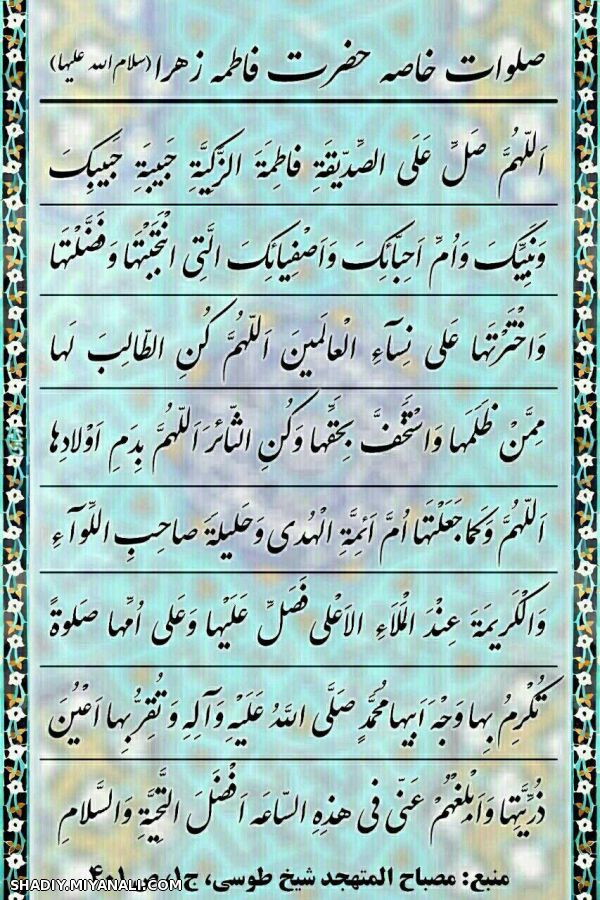 صلوات خاصه حضرت فاطمه زهرا (سلام الله علیها)
اَللّهُمَّ صَلِّ عَلَی الصِّدّیقَةِ فاطِمَةَ الزَّکِیَّةِ حَبیبَةِ حَبیبِکَ
وَنَبِیِّکَ وَاُمِّ اَحِبّآئِکَ وَاَصْفِیائِکَ الَّتِی انْتَجَبْتَها وَفَضَّلْتَها
وَاخْتَرْتَها عَلی نِسآءِ الْعالَمینَ اَللّهُمَّ کُنِ الطّالِبَ لَها
مِمَّنْ ظَلَمَها وَاسْتَخَفَّ بِحَقِّها وَکُنِ الثّائِرَ اَللّهُمَّ بِدَمِ اَوْلادِها
اَللّهُمَّ وَکَما جَعَلْتَها اُمَّ اَئِمَّةِ الْهُدی وَحَلیلَةَ صاحِبِ اللِّوآءِ
وَالْکَریمَةَ عِنْدَ الْمَلَاءِ الاَعْلی فَصَلِّ عَلَیْها وَعَلی اُمِّها صَلوةً
تُکْرِمُ بِها وَجْهَ اَبیها مُحَمَّدٍ صَلَّی اللَّهُ عَلَیْهِ وَآلِهِ وَتُقِرُّ بِها اَعْیُنَ
ذُرِّیَّتِها وَاَبْلِغْهُمْ عَنّی فی هذِهِ السّاعَه اَفْضَلَ التَّحِیَّةِ وَالسَّلامِ
منبع: مصباح المتهجد شیخ طوسی، ج۱، ص ۴۰۱
SHADIY.MIYANALI.COM